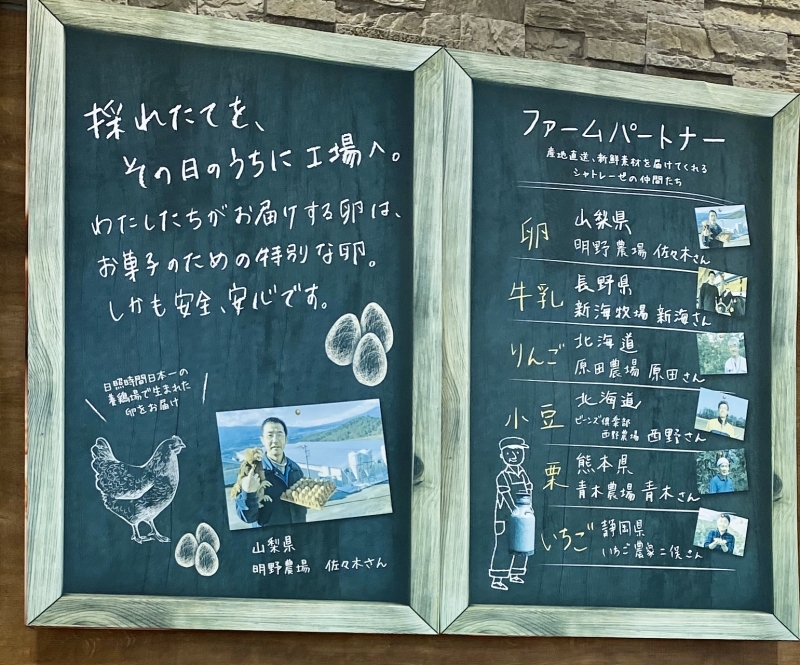 採れたてを、
その日のうちに工場へ。
わたしたちがお届けする卵は、
お菓子のための特別な卵。
しかも安全、安心です。
日照時間日本一の
養鶏場で生まれた
卵をお届け
山梨県
明野農場 佐々木さん
ファームパートナー
産地直送、新鮮素材を届けてくれる
シャトレーゼの仲間たち
卵
山梨県
明野農場 佐々木さん
牛乳
長野県
新海牧場 新海さん
りんご
北海道
原田農場 原田さん
小豆
北海道
ビーンズ倶楽部
西野農場 西野さん
栗
熊本県
青木農場 青木さん
いちご
静岡県
いちご農家 二俣さん